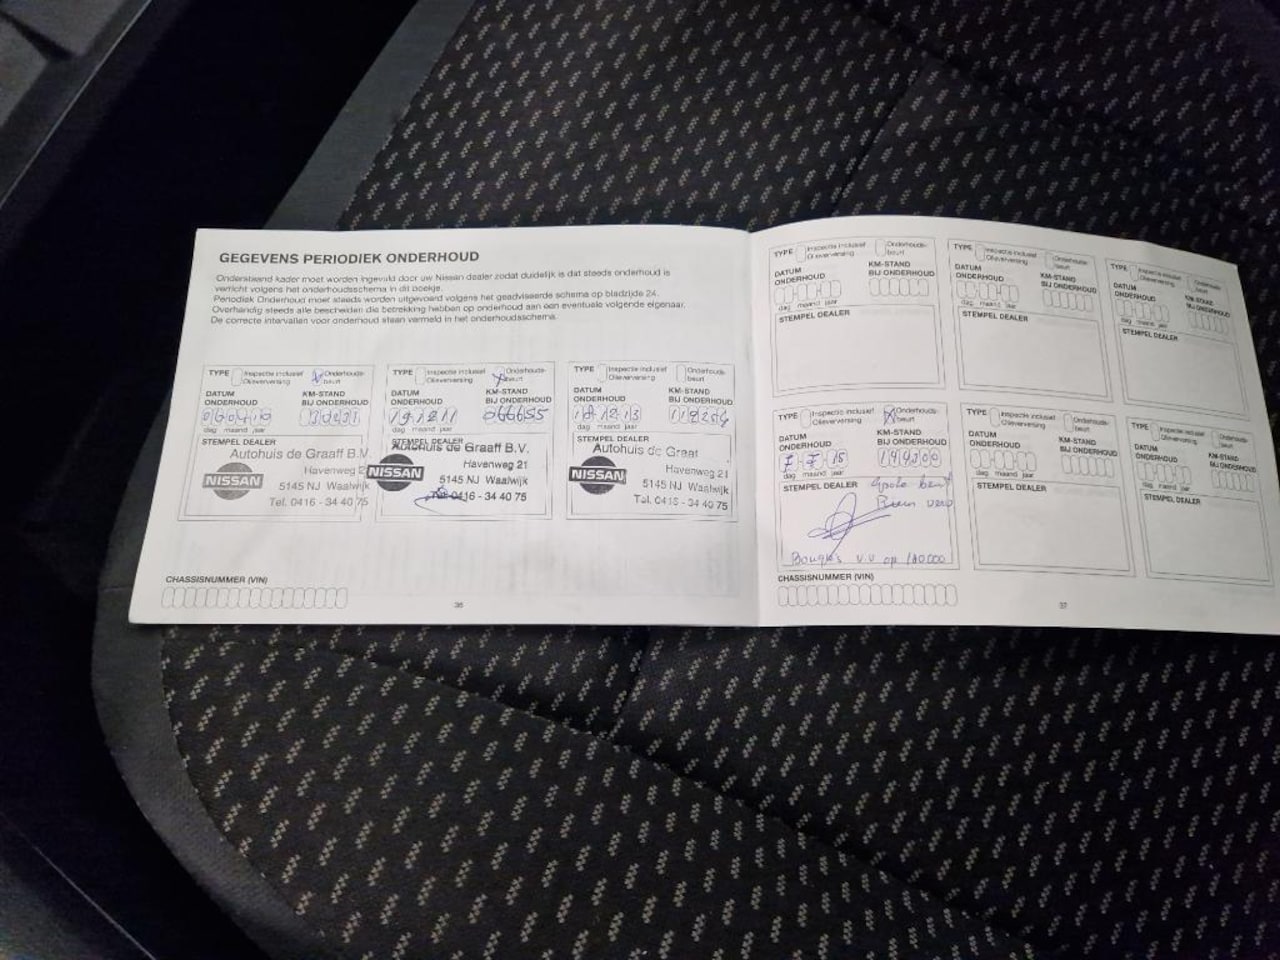 GEGEVENS PERIODIEK ONDERHOUD
Onderstaand kader moet worden ingevuld door uw Nissan dealer zodat duidelijk is dat steeds onderhoud is
verricht volgens het onderhoudsschema in dit boekje.
Periodiek Onderhoud moet steeds worden uitgevoerd volgens het geadviseerde schema op bladzijde 24.
Overhandig steeds alle bescheiden die betrekking hebben op onderhoud aan een eventuele volgende eigenaar.
De correcte intervallen voor onderhoud staan vermeld in het onderhoudsschema.
TYPE Inspectie inclusief Olieverversing Onderhouds-beurt
DATUM ONDERHOUD KM-STAND BIJ ONDERHOUD
dag maand jaar
STEMPEL DEALER
Autohuis de Graaff B.V.
Havenweg 2
NISSAN
5145 NJ Waalwijk
Tel. 0416 - 34 40 75
TYPE Inspectie inclusief Olieverversing Onderhouds-beurt
DATUM ONDERHOUD KM-STAND BIJ ONDERHOUD
191211 066655
dag maand jaar
STEMPEL DEALER
Autohuis de Graaff B.V.
Havenweg 21
NISSAN
5145 NJ Waalwijk
0416 - 34 40 75
TYPE Inspectie inclusief Olieverversing Onderhouds-beurt
DATUM ONDERHOUD KM-STAND BIJ ONDERHOUD
18 12 13
dag maand jaar
STEMPEL DEALER
Autohuis de Graaf
Havenweg 21
NISSAN
5145 NJ Waalwijk
Tel. 0416 - 34 40 75
CHASSISNUMMER (VIN)
36
TYPE Inspectie inclusief Olieverversing Onderhouds-beurt
DATUM ONDERHOUD KM-STAND BIJ ONDERHOUD
dag maand jaar
STEMPEL DEALER
TYPE Inspectie inclusief Olieverversing Onderhouds-beurt
DATUM ONDERHOUD KM-STAND BIJ ONDERHOUD
dag maand jaar
STEMPEL DEALER
TYPE Inspectie inclusief Olieverversing Onderhouds-beurt
DATUM ONDERHOUD KM-STAND BIJ ONDERHOUD
dag maand jaar
STEMPEL DEALER
TYPE Inspectie inclusief Olieverversing Onderhouds-beurt
DATUM ONDERHOUD KM-STAND BIJ ONDERHOUD
7-7-15 144300
dag maand jaar
STEMPEL DEALER
Grote beurt
op 180000
TYPE Inspectie inclusief Olieverversing Onderhouds-beurt
DATUM ONDERHOUD KM-STAND BIJ ONDERHOUD
dag maand jaar
STEMPEL DEALER
TYPE Inspectie inclusief Olieverversing Onderhouds-beurt
DATUM ONDERHOUD KM-STAND BIJ ONDERHOUD
dag maand jaar
STEMPEL DEALER
CHASSISNUMMER (VIN)
37